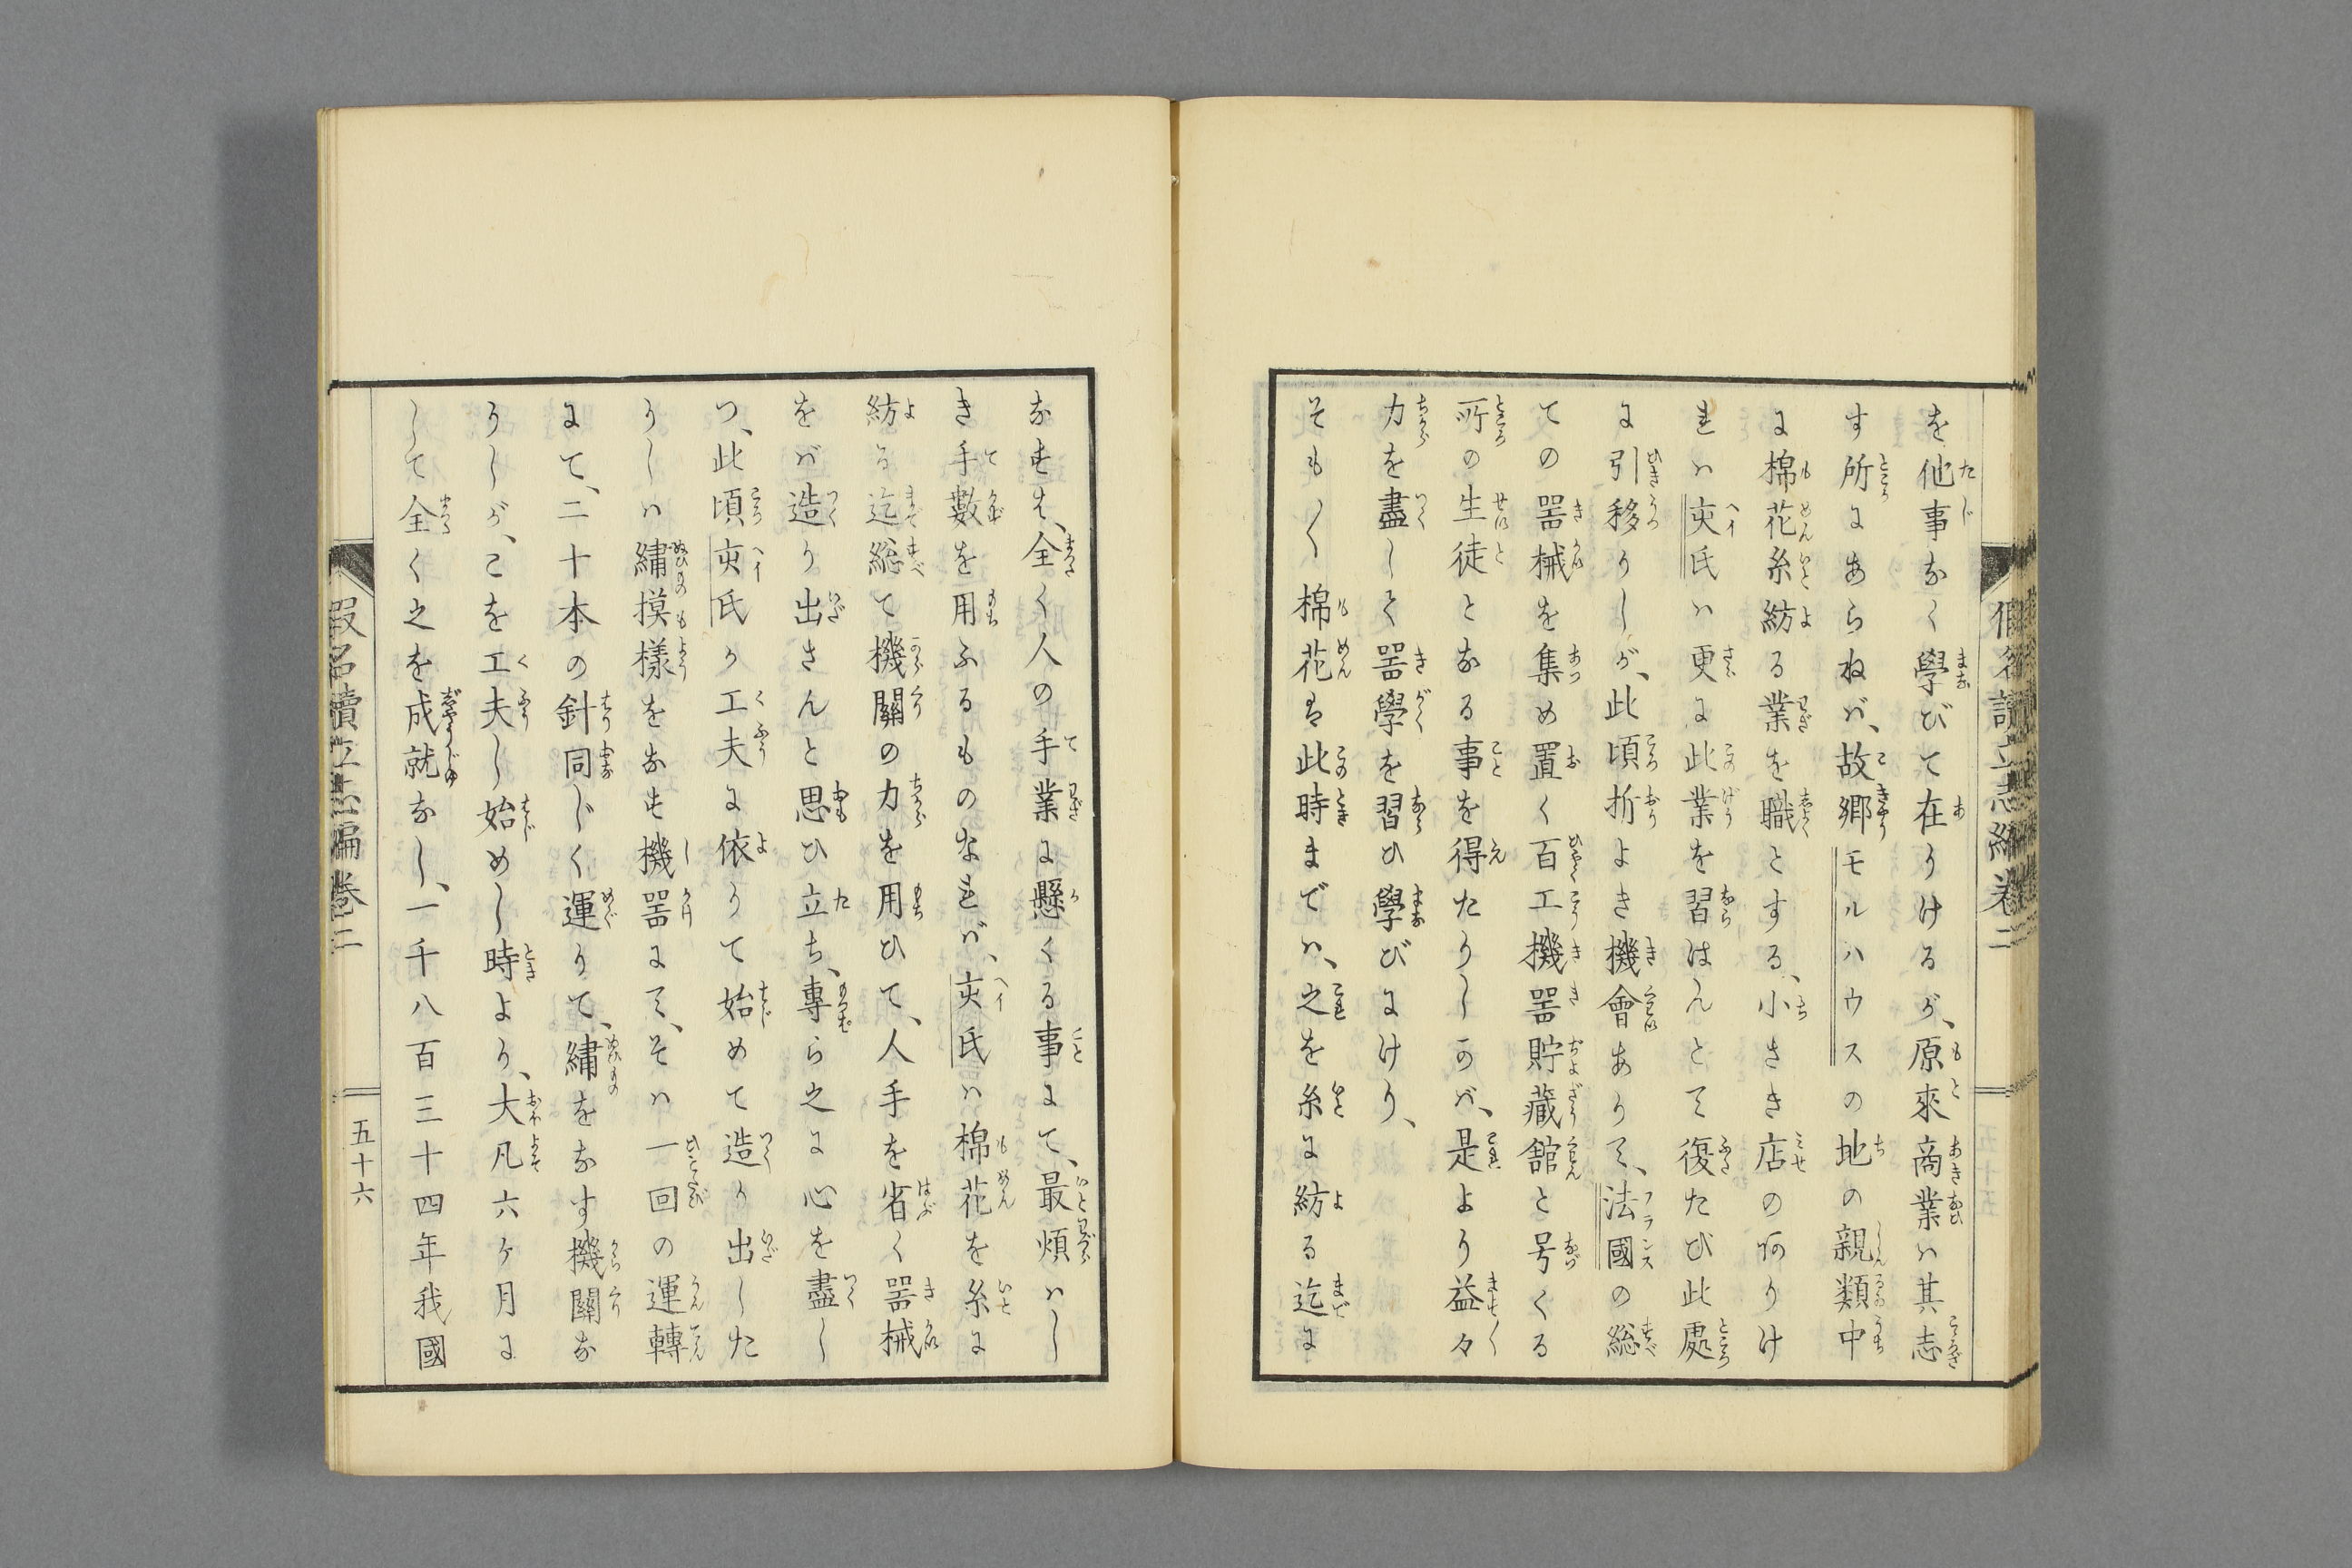 を他事なく學びて在りけるが、原來商業ハ其志
す所にあらねバ、故郷モルハウスの地の親類中
に棉花糸紡る業を職とする、小さき店のありけ
れハ夾氏ハ更に此業を習はんとて復たび此處
に引移りしが、此頃折よき機會ありて、法國の総
ての噐械を集め置く百工機噐貯藏舘と号くる
所の生徒となる事を得たりしかバ、是より益々
力を盡して噐學を習ひ學びにけり、
そも〱棉花は此時までハ、之を糸に紡る迄に
なすは、全く人の手業に懸くる事にて、最煩ハし
き手數を用ふるものなれバ、夾氏ハ棉花を糸に
紡る迄総て機關の力を用ひて、人手を省く噐械
をバ造り出さんと思ひ立ち、專ら之に心を盡し
つ、此頃夾氏か工夫に依りて始めて造り出した
りしハ繡摸樣をなす機噐にて、そハ一回の運轉
にて、二十本の針同じく運りて、繡をなす機關な
りしが、こを工夫し始めし時より、大凡六ケ月に
して全く之を成就なし、一千八百三十四年我國
假名讀立志編卷二
五十六